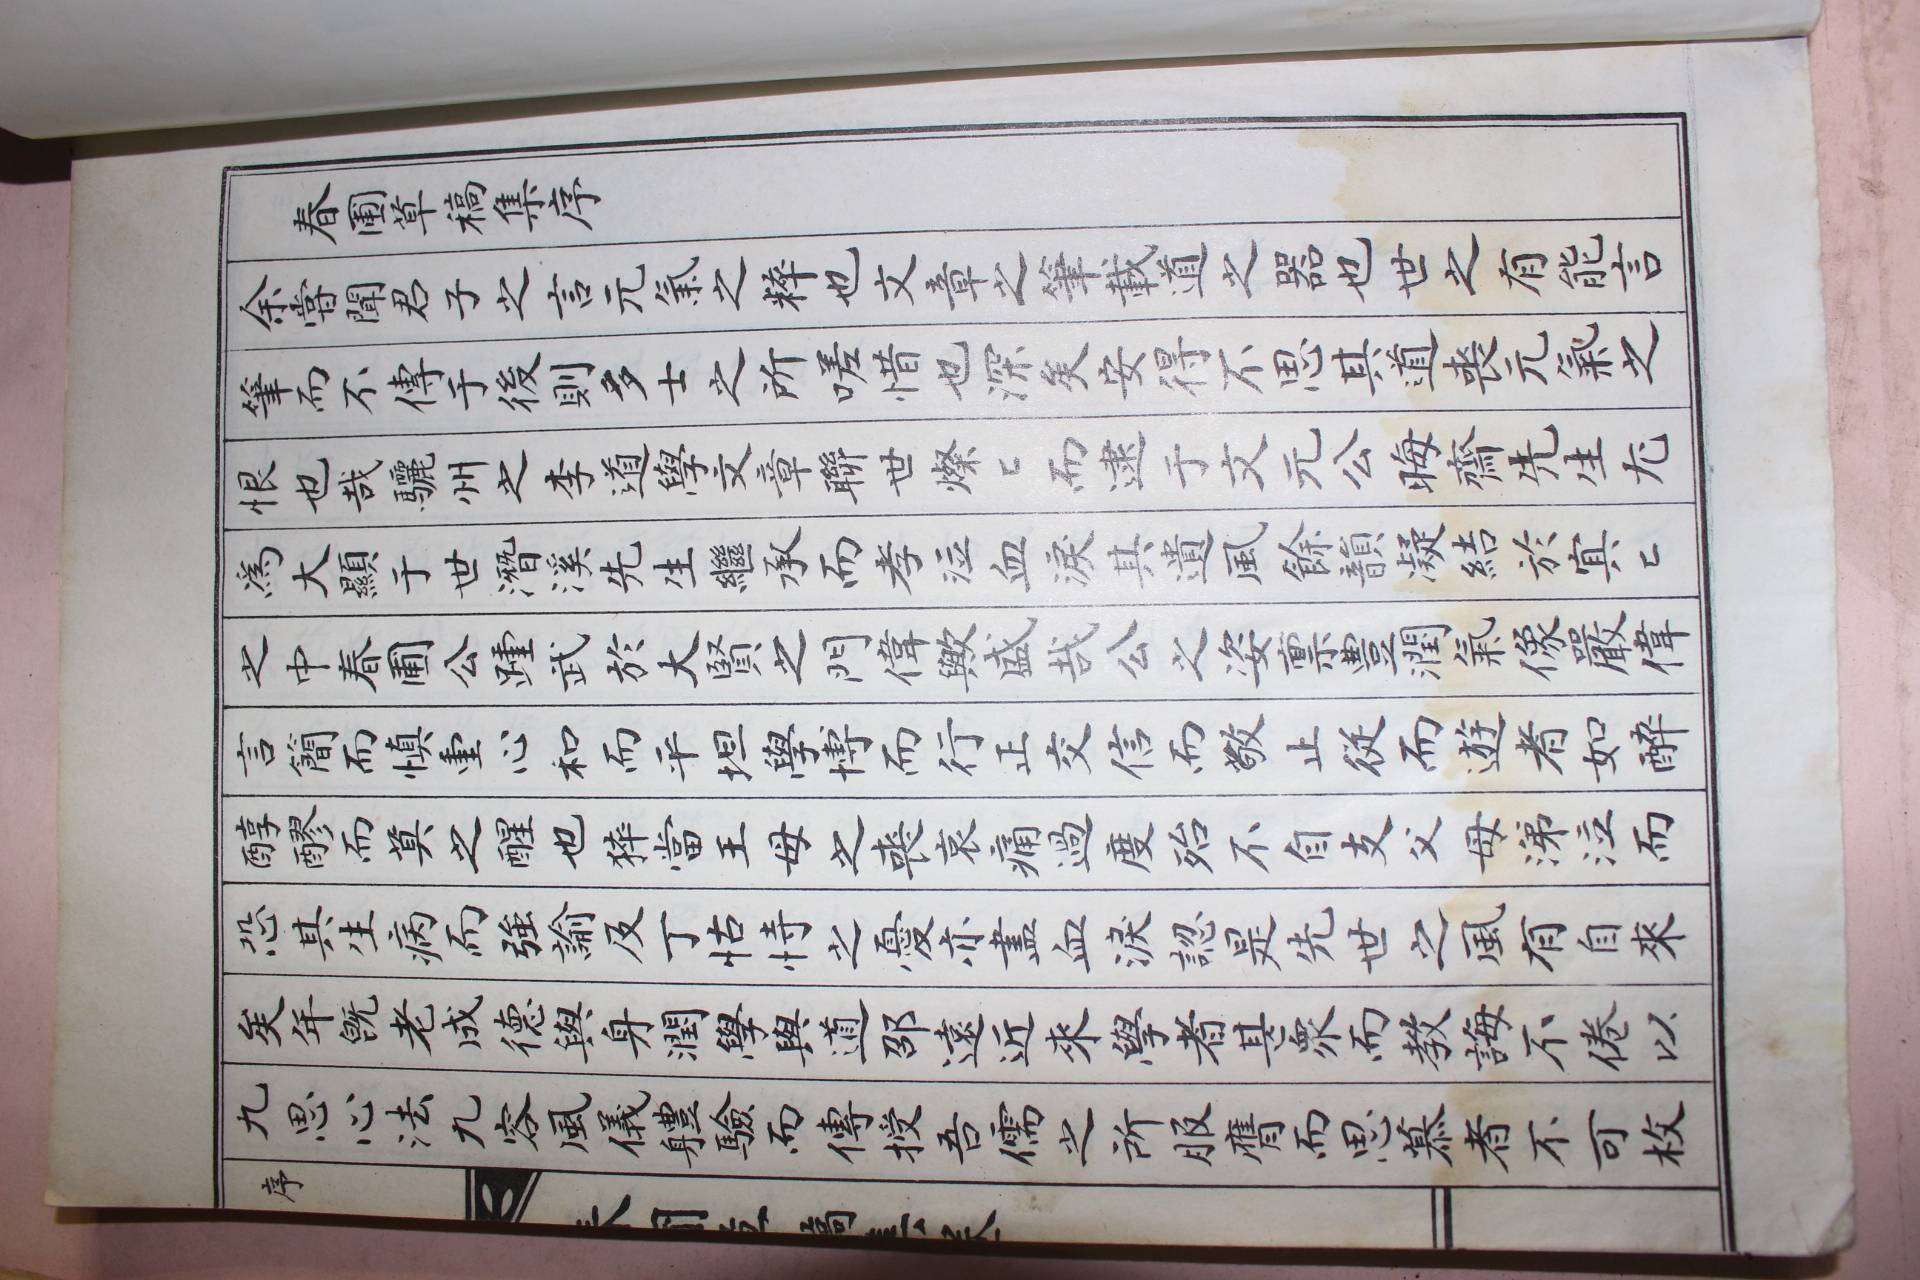 春圃草稿集序
余嘗聞君子之言元氣之粹也文章之筆載道之器也世之有能言
筆而不傳于後則多士之所嗟惜也深矣安得不思其道喪元氣之
恨也哉驪州之李道學文章聯世燦〻而逮于文元公晦齋先生尤
爲大顯于世潛溪先生繼承而孝泣血淚其遺風餘韻凝結於寘〻
之中春圃公踵武於大賢之門偉歟盛哉公之姿禀豊潤氣像嚴偉
言簡而愼重心和而平坦學博而行正交信而敬止從而遊者如醉
醇醪而莫之醒也猝當王母之喪哀痛過度殆不自支父母涕泣而
恐其生病而強諭及丁怙恃之憂亦盡血淚認是先世之風有自來
矣年旣老成德與身潤學與道邵遠近來學者甚衆而教誨不倦以
九思心法九容風儀軆驗而傳授吾儒之所服膺而思慕者不可枚
序
春圃草稿集卷